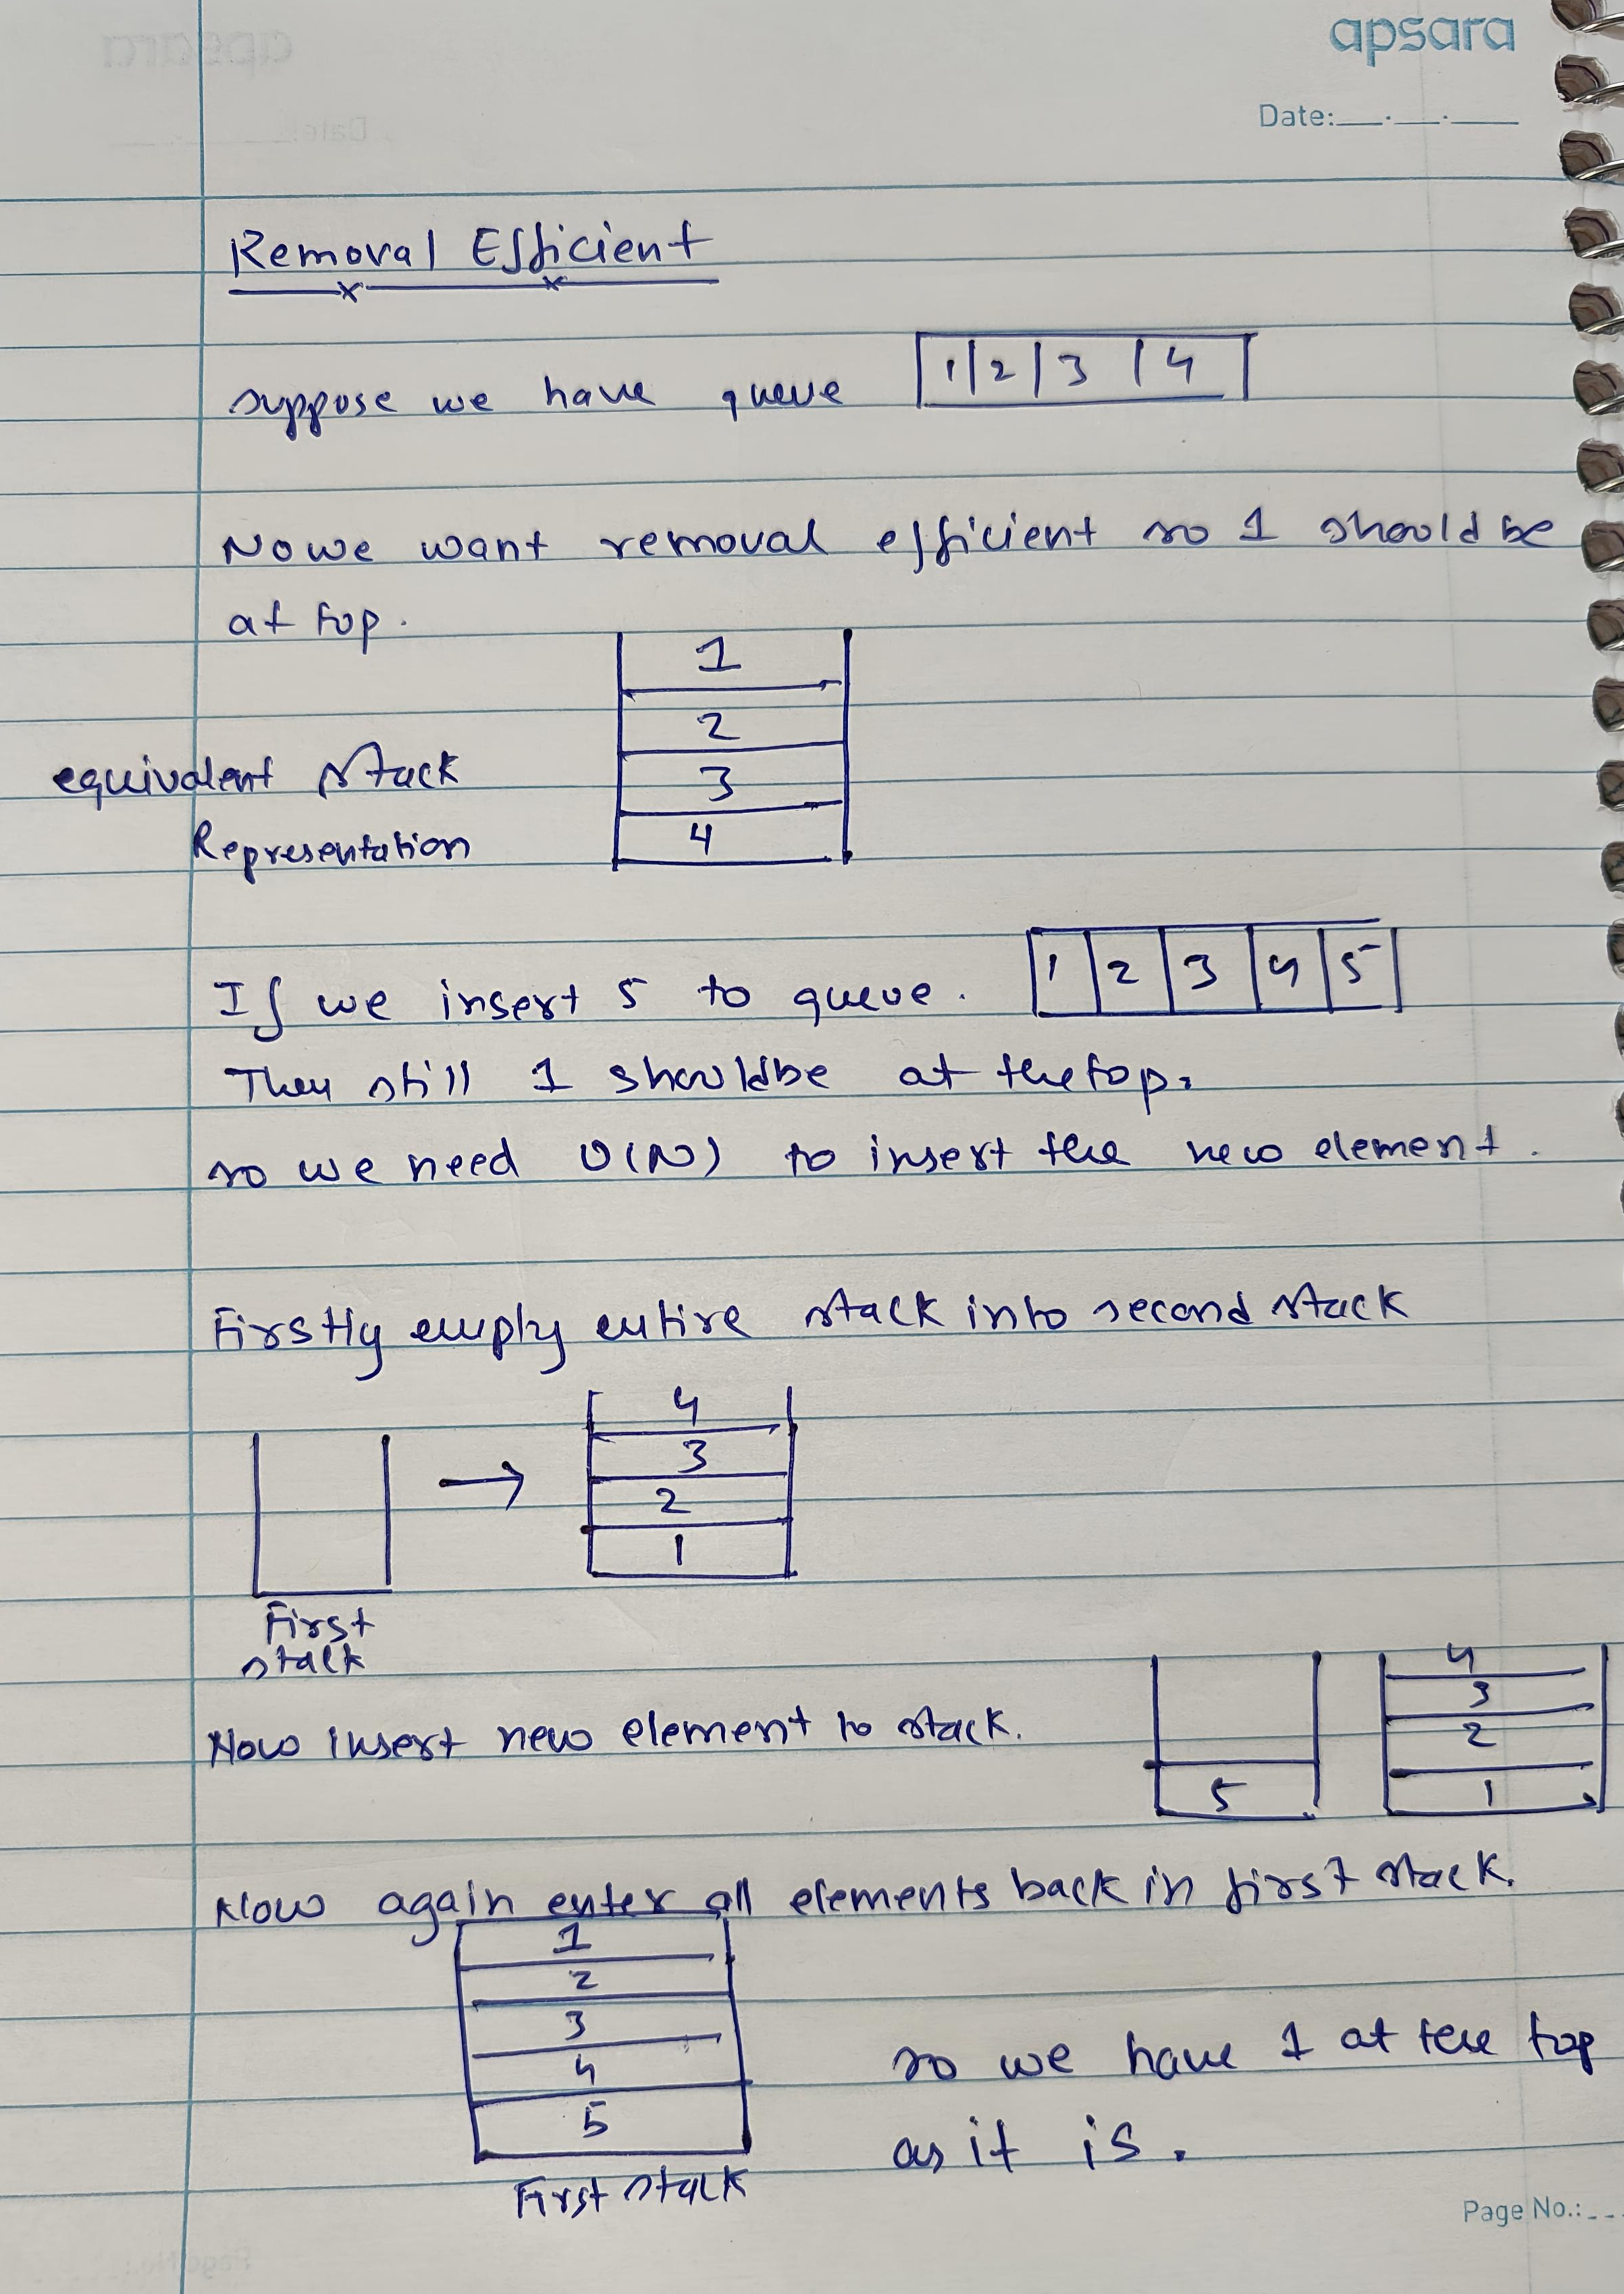 apsara
Date:__.__.__
Removal Efficient
suppose we have queue 1 2 3 4
Now we want removal efficient so 1 should be
at top.
1
2
equivalent stack
3
Representation
4
If we insert 5 to queue. 1 2 3 4 5
Then still 1 should be at the top.
so we need O(N) to insert the new element.
Firstly empty entire stack into second stack
4
3
2
1
First
stack
Now insert new element to stack.
5
4
3
2
1
Now again enter all elements back in first stack.
1
2
3
4
5
First stack
so we have 1 at the top
as it is.
Page No.: